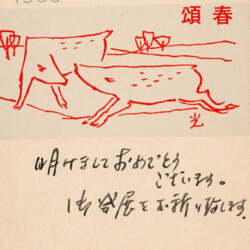 頌春
光
明けましておめでとう
ございます。
御発展をお祈り致します